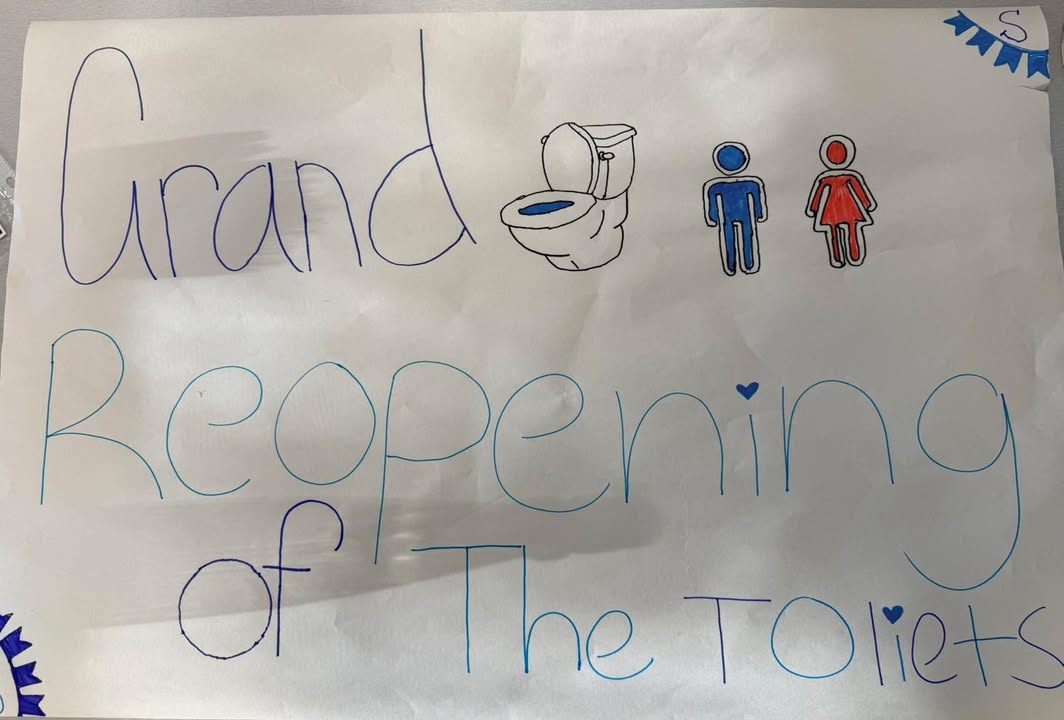 S
Grand
Reopening
of The Toliets